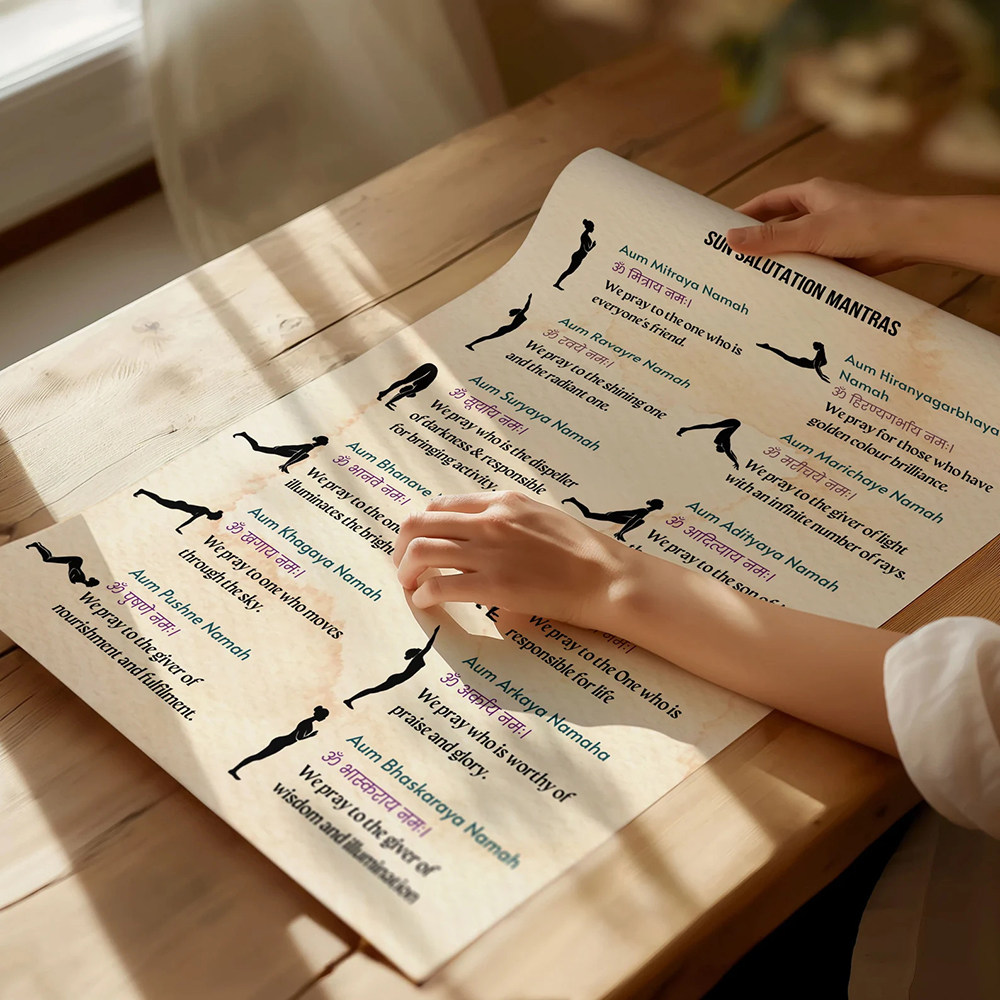 SUN SALUTATION MANTRAS
Aum Mitraya Namah
ॐ मित्राय नमः।
We pray to the one who is
everyone's friend.
Aum Ravayre Namah
ॐ रवये नमः।
We pray to the shining one
and the radiant one.
Aum Suryaya Namah
ॐ सूर्याय नमः।
We pray who is the dispeller
of darkness & responsible
for bringing activity.
Aum Bhanave
ॐ भानवे नमः।
We pray to the one
illuminates the bright
Aum Khagaya Namah
ॐ खगाय नमः।
We pray to one who moves
through the sky.
Aum Pushne Namah
ॐ पुषणे नमः।
We pray to the giver of
nourishment and fulfilment.
Aum Hiranyagarbhaya
Namah
ॐ हिरण्यगर्भाय नमः।
We pray for those who have
golden colour brilliance.
Aum Marichaye Namah
ॐ मरीचये नमः।
We pray to the giver of light
with an infinite number of rays.
Aum Adityaya Namah
ॐ आदित्याय नमः।
We pray to the son of
नमः।
We pray to the One who is
responsible for life
Aum Arkaya Namaha
ॐ अर्काय नमः।
We pray who is worthy of
praise and glory.
Aum Bhaskaraya Namah
ॐ भास्कराय नमः।
We pray to the giver of
wisdom and illumination